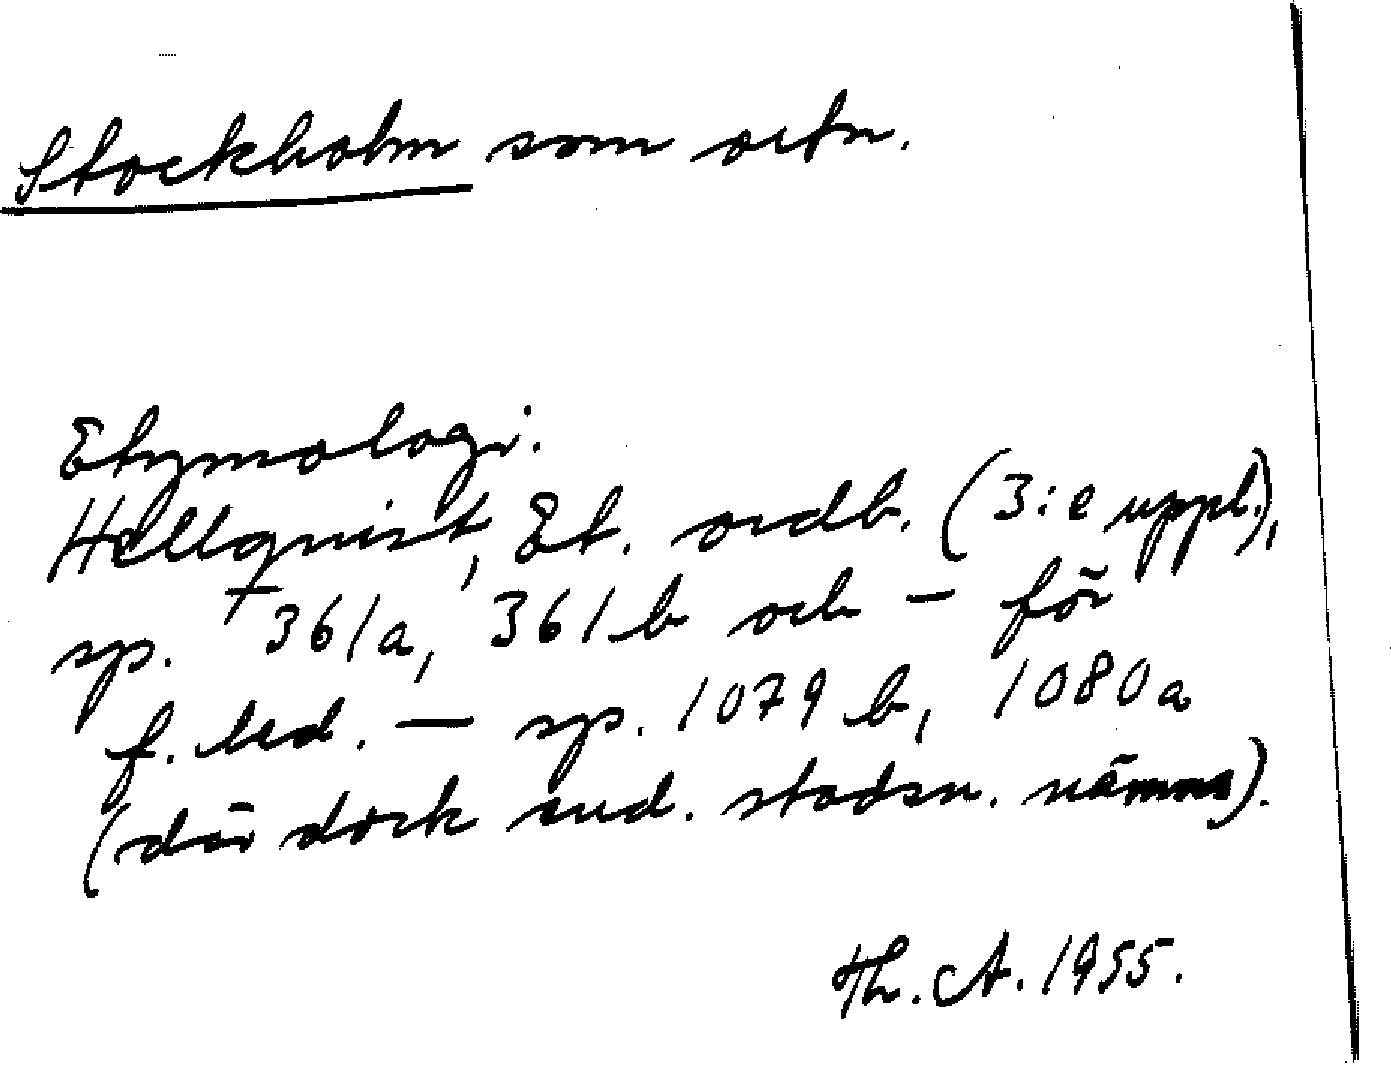 Stockholm som ortn.
Etymologi.
Hellquist, Et. ordb. (3:e uppl.),
sp. 361a, 361b och – för
f. led. — sp. 1079 b, 1080a
(där dock end. stadsn. nämns).
Th. A. 1955.